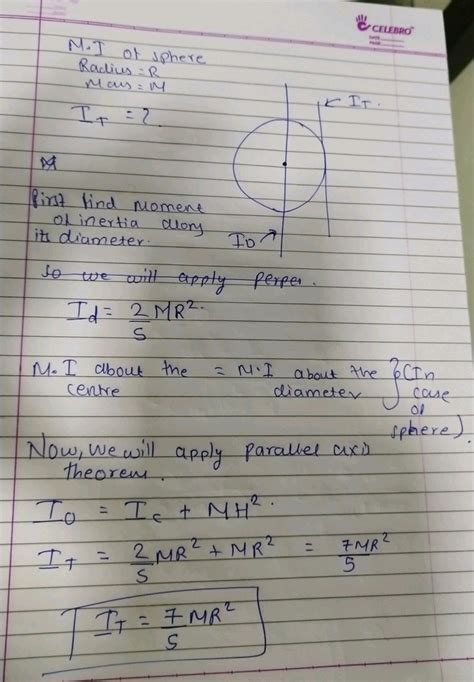 CELEBRO
DATE
PAGE
M.I of sphere
Radius = R
Mass = M
I_T = ?
I_T.
first find Moment
of inertia along
its diameter.
I_D
So we will apply perper.
I_d = 2/5 MR².
M.I about the centre = M.I about the diameter } (In case of sphere)
Now, we will apply parallel axis
theorem.
I_O = I_C + MH².
I_T = 2/5 MR² + MR² = 7MR²/5
I_T = 7MR²/5